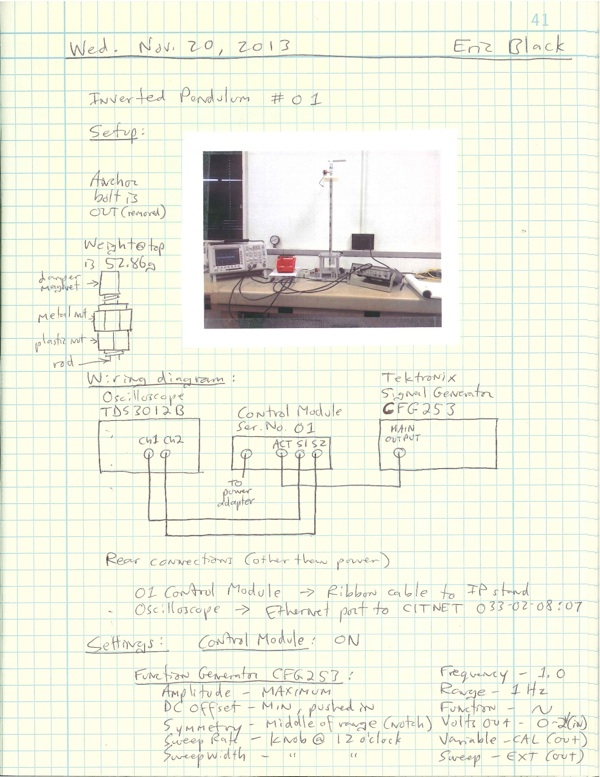 41
Wed. Nov. 20, 2013 Eric Black
Inverted Pendulum #01
Setup:
Anchor
bolt is
OUT (removed)
Weight@top
is 52.86g
damper
magnet
metal nut
plastic nut
rod
Wiring diagram:
Oscilloscope
TDS3012B
Control Module
Ser. No. 01
Tektronix
Signal Generator
CFG253
Ch1 Ch2
ACT S1 S2
MAIN
OUTPUT
TO
power
adapter
Rear connections (other than power)
01 Control Module → Ribbon cable to IP stand
Oscilloscope → Ethernet port to CITNET 033-02-08:07
Settings: Control Module: ON
Function Generator CFG253:
Amplitude - MAXIMUM
DC Offset - MIN, pushed in
Symmetry - Middle of range (notch)
Sweep Rate - Knob @ 12 o'clock
Sweep Width - " "
Frequency - 1.0
Range - 1 Hz
Function - ~
Volts Out - 0-2 (in)
Variable - CAL (out)
Sweep - EXT (out)